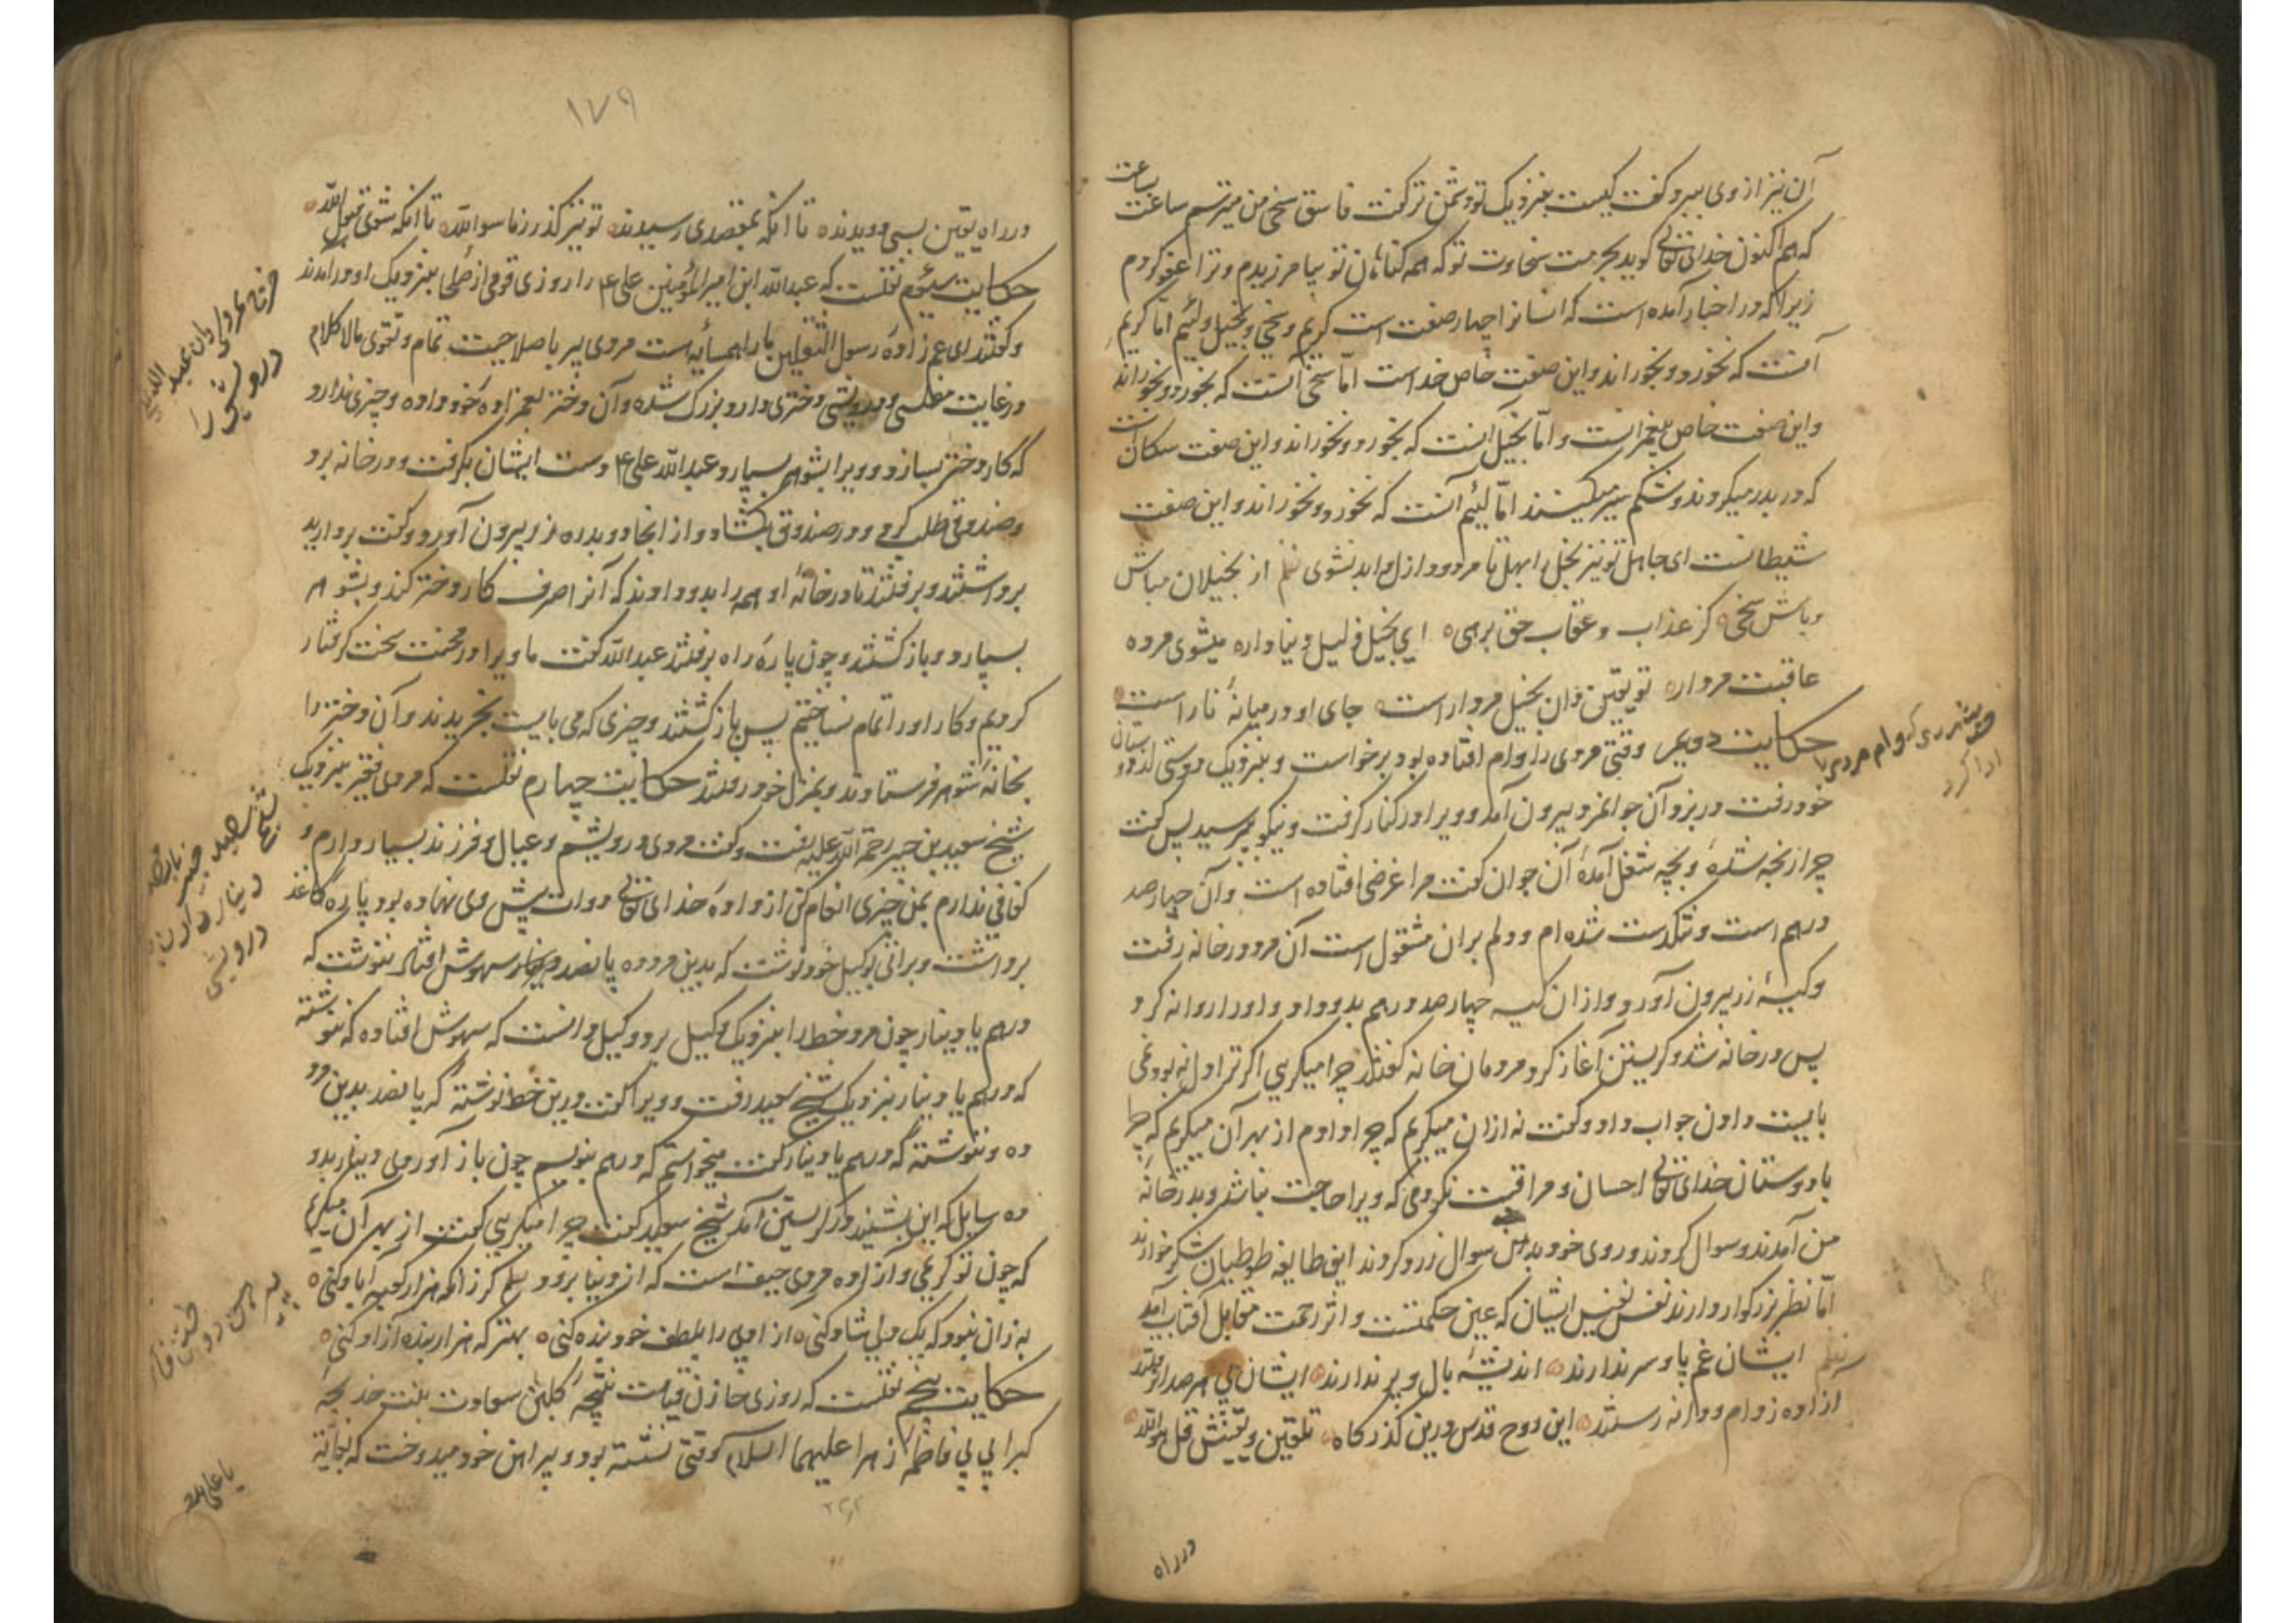 آن نیز از وی ببرد و گفت کیست بنزدیک تو دشمن تر گفت فاسق سخی من میترسم ساعت بساعت
که هم اکنون خدای تعالی گوید بحرمت سخاوت تو که همه گناهان تو بیامرزیدم و ترا عفو کردم
زیراکه در اخبار آمده است که انسانرا چهار صفت است کریم و سخی و بخیل و لئیم اما کریم
آنست که نخورد و بخوراند و این صفت خاص خداست اما سخی آنست که بخورد و بخوراند
و این صفت خاص پیغمبرانست و اما بخیل آنست که بخورد و نخوراند و این صفت سگانست
که در بدر میگردند و شکم سیر میکنند اما لئیم آنست که نخورد و نخوراند و این صفت
شیطانست ای جاهل تو نیز بخل را بهل تا مردود ازل و ابد نشوی نظم از بخیلان مباش
و باش سخی کز عذاب و عقاب حق برهی ای بخیل ذلیل دنیا داره میشوی مرده
عاقبت مردار تو یقین دان بخیل مردار است جای او در میانهٔ نار است
حکایت دویم وقتی مردی را وام افتاده بود برخواست و بنزدیک دوستی از دوستان
خود رفت در بزد آن جوانمرد بیرون آمد و ویرا در کنار گرفت و نیکو بپرسید پس گفت
چرا رنجه شدهٔ و بچه شغل آمدهٔ آن جوان گفت مرا غرضی افتاده است و آن چهارصد
درهم است و تنگدست شده ام و دلم بران مشغول است آن مرد در خانه رفت
و کیسهٔ زر بیرون آورد و از ان کیسه چهارصد درهم بدو داد و او را روانه کرد
پس در خانه شد و گریستن آغاز کرد مردمان خانه گفتند چرا میگریی اگر ترا دل نه بود نمی
بایست دادن جواب داد و گفت نه ازان میگریم که چرا دادم از بهر آن میگریم که چرا
با دوستان خدای تعالی احسان و مراقبت نکردمی که ویرا حاجت نباشد و بدر خانهٔ
من آمدند و سوال کردند و روی خود بدین سوال زرد کردند این طایفه طوطیان شکر خوارند
اما نظر بزرگوار دارند نفس نفیس ایشان که عین حکمتست و اثر رحمت مقابل آفتاب آمد
نظم ایشان غم پا و سر ندارند اندیشهٔ بال و پر ندارند ایشان پی هر صدا نرفتند
آزاده ز دام و دانه رستند این روح قدس درین گذرگاه تلقین و یقینش قل هو الله
حکایت شخصی که وام مردی را
ادا کرد
در راه
۱۷۹
در راه یقین بسی دویدند تا انکه بمقصدی رسیدند تو نیز گذر ز ماسوا الله تا انکه شوی قبول الله
حکایت سیوم نقلست که عبدالله ابن امیرالمؤمنین علی ع را روزی قومی از صلحا بنزدیک او درامدند
و گفتند ای عم زادهٔ رسول الثقلین ما را همسایه است مردی پیر با صلاحیت تمام و تقوی مالا کلام
در غایت مفلسی و درویشی دختری دارد بزرگ شده و آن دختر بعم زاده خود داده و چیزی ندارد
که کار دختر بسازد و ویرا بشوهر بسپارد عبدالله علی ع دست ایشان بگرفت و در خانه برد
و صندوقی طلب کرد و در صندوق بگشاد و از انجا دو بدره زر بیرون آورد و گفت بردارید
برداشتند و برفتند تا در خانهٔ او همه را بدو دادند که آنرا صرف کار دختر کند و بشوهر
بسپارد و بازگشتند و چون پارهٔ راه برفتند عبدالله گفت ما ویرا در محنت سخت گرفتار
کردیم و کار او را تمام نساختیم پس بازگشتند و چیزی که می بایست بخریدند و آن دختر را
بخانهٔ شوهر فرستادند و بمنزل خود رفتند حکایت چهارم نقلست که مردی فقیر بنزدیک
شیخ سعید بن جبیر رحمة الله علیه رفت و گفت مردی درویشم و عیال و فرزند بسیار دارم و
کفافی ندارم بمن چیزی انعام کن از دادهٔ خدای تعالی دوات پیش وی نهاده بود پارهٔ کاغذ
برداشت و براتی بوکیل خود نوشت که بدین مرد ده پانصد دینار و سهوش افتاد ننوشت که
درهم یا دینار چون مرد خط را بنزدیک وکیل برد وکیل دانست که سهوش افتاده که ننوشته
که درهم یا دینار بنزدیک شیخ سعید رفت و ویرا گفت درین خط نوشتهٔ که پانصد بدین مرد
ده و ننوشتهٔ که درهم یا دینار گفت میخواستم که درهم بنویسم چون باز آوردی دینار بدو
ده سایل که این بشنید در گریستن آمد شیخ سعید گفت چرا میگریی گفت از بهر آن میگریم
که چون تو کریمی و آزاده مردی حیف است که از دنیا برود نظم گر زانکه هزار کعبه آباد کنی
به زان نبود که یک دلی شاد کنی از ادی را بلطف خود بنده کنی بهتر که هزار بنده آزاد کنی
حکایت پنجم نقلست که روزی خازن قیامت نتیجهٔ گلبن سعادت بنت خدیجهٔ
کبرا بی بی فاطمه زهرا علیهما السلام وقتی نشسته بود و پیراهن خود میدوخت که بخانهٔ
درویش را
شیخ سعید جبیر
دینار دادن
درویشی
یا علی مدد